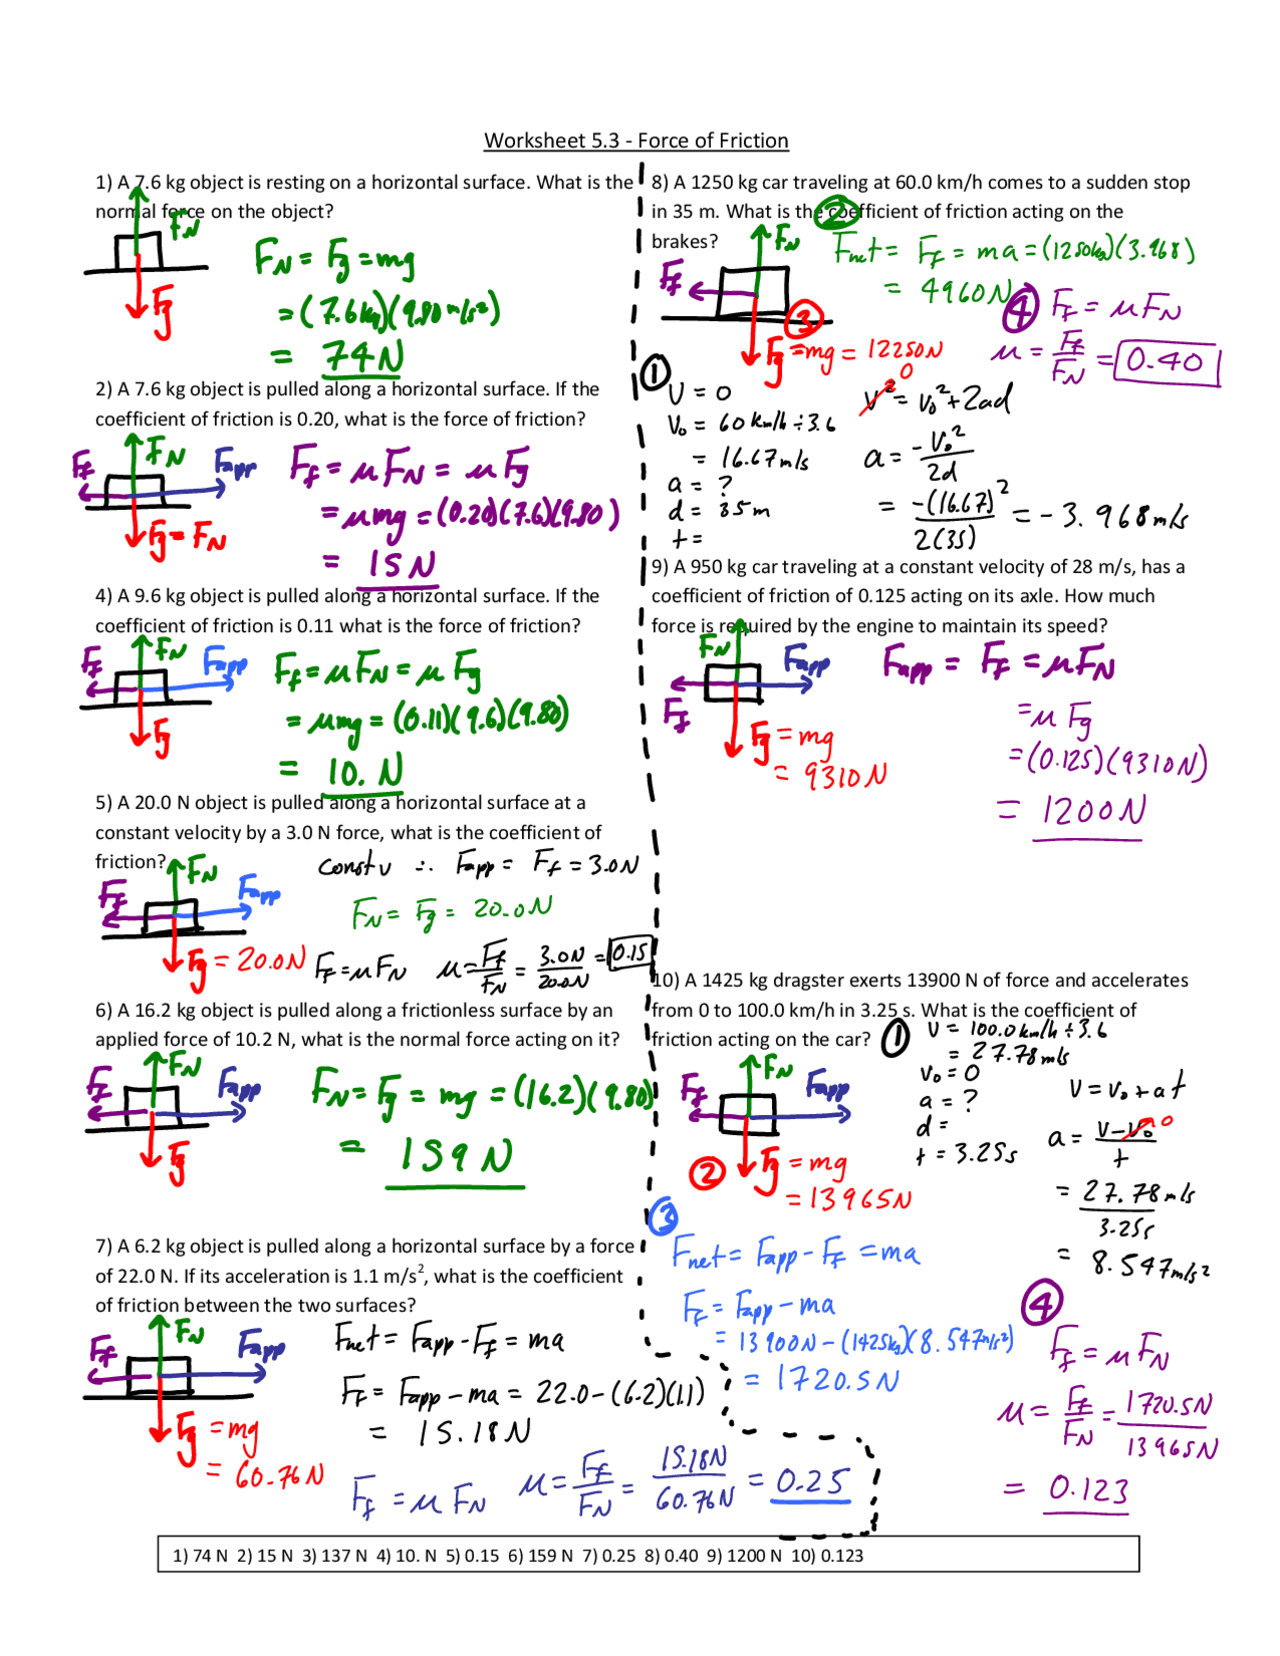 Worksheet 5.3 - Force of Friction
1) A 7.6 kg object is resting on a horizontal surface. What is the
normal force on the object?
F_N
F_g
F_N = F_g = mg
= (7.6kg)(9.80 m/s²)
= 74N
2) A 7.6 kg object is pulled along a horizontal surface. If the
coefficient of friction is 0.20, what is the force of friction?
F_f
F_N
F_app
F_g = F_N
F_f = μF_N = μF_g
= μmg = (0.20)(7.6)(9.80)
= 15N
4) A 9.6 kg object is pulled along a horizontal surface. If the
coefficient of friction is 0.11 what is the force of friction?
F_f
F_N
F_app
F_g
F_f = μF_N = μF_g
= μmg = (0.11)(9.6)(9.80)
= 10. N
5) A 20.0 N object is pulled along a horizontal surface at a
constant velocity by a 3.0 N force, what is the coefficient of
friction?
const v ∴ F_app = F_f = 3.0N
F_f
F_N
F_app
F_g = 20.0N
F_N = F_g = 20.0N
F_f = μF_N μ = F_f/F_N = 3.0N/20.0N = 0.15
6) A 16.2 kg object is pulled along a frictionless surface by an
applied force of 10.2 N, what is the normal force acting on it?
F_f
F_N
F_app
F_g
F_N = F_g = mg = (16.2)(9.80)
= 159N
7) A 6.2 kg object is pulled along a horizontal surface by a force
of 22.0 N. If its acceleration is 1.1 m/s², what is the coefficient
of friction between the two surfaces?
F_f
F_N
F_app
F_g = mg
= 60.76N
F_net = F_app - F_f = ma
F_f = F_app - ma = 22.0 - (6.2)(1.1)
= 15.18N
F_f = μF_N μ = F_f/F_N = 15.18N/60.76N = 0.25
8) A 1250 kg car traveling at 60.0 km/h comes to a sudden stop
in 35 m. What is the coefficient of friction acting on the
brakes?
F_f
F_N
② F_net = F_f = ma = (1250kg)(3.968)
= 4960N
③ F_g = mg = 12250N
④ F_f = μF_N
μ = F_f/F_N = 0.40
① V = 0
V₀ = 60 km/h ÷ 3.6
= 16.67m/s
a = ?
d = 35m
t =
V² = V₀² + 2ad
0
a = -V₀²/2d
= -(16.67)²/2(35) = -3.968m/s
9) A 950 kg car traveling at a constant velocity of 28 m/s, has a
coefficient of friction of 0.125 acting on its axle. How much
force is required by the engine to maintain its speed?
F_N
F_app
F_f
F_g = mg
= 9310N
F_app = F_f = μF_N
= μF_g
= (0.125)(9310N)
= 1200N
10) A 1425 kg dragster exerts 13900 N of force and accelerates
from 0 to 100.0 km/h in 3.25 s. What is the coefficient of
friction acting on the car?
① V = 100.0 km/h ÷ 3.6
= 27.78m/s
V₀ = 0
a = ?
d =
t = 3.25s
V = V₀ + at
a = V-V₀/t
0
= 27.78m/s/3.25s
= 8.547m/s²
F_f
F_N
F_app
② F_g = mg
= 13965N
③ F_net = F_app - F_f = ma
F_f = F_app - ma
= 13900N - (1425kg)(8.547m/s²)
= 1720.5N
④ F_f = μF_N
μ = F_f/F_N = 1720.5N/13965N
= 0.123
1) 74 N 2) 15 N 3) 137 N 4) 10. N 5) 0.15 6) 159 N 7) 0.25 8) 0.40 9) 1200 N 10) 0.123